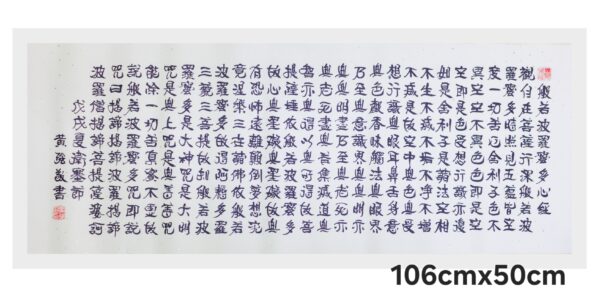 般若波羅蜜多心經
觀自在菩薩行深般若波
羅蜜多時照見五蘊皆空
度一切苦厄舍利子色不
異空空不異色色即是空
空即是色受想行識亦復
如是舍利子是諸法空相
不生不滅不垢不淨不增
不減是故空中無色無受
想行識無眼耳鼻舌身意
無色聲香味觸法無眼界
乃至無意識界無無明亦
無無明盡乃至無老死亦
無老死盡無苦集滅道無
智亦無得以無所得故菩
提薩埵依般若波羅蜜多
故心無罣礙無罣礙故無
有恐怖遠離顛倒夢想究
竟涅槃三世諸佛依般若
波羅蜜多故得阿耨多羅
三藐三菩提故知般若波
羅蜜多是大神咒是大明
咒是無上咒是無等等咒
能除一切苦真實不虛故
說般若波羅蜜多咒即說
咒曰揭諦揭諦波羅揭諦
波羅僧揭諦菩提薩婆訶
戊戌夏
黃 敬書
106cmx50cm